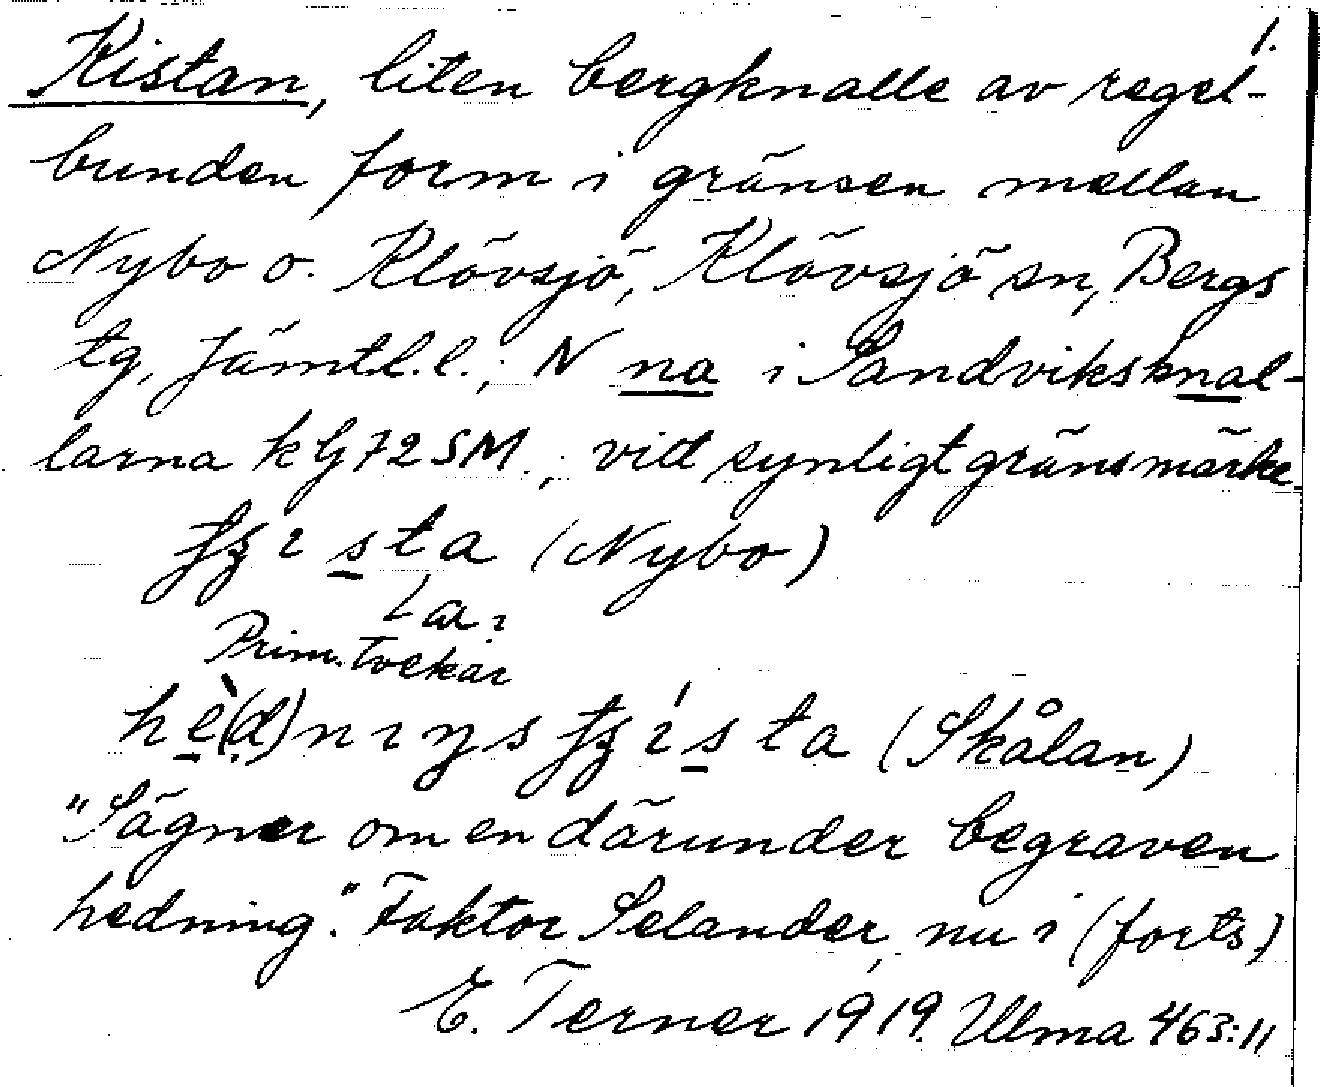 1.
Kistan, liten bergknalle av regel-
bunden form i gränsen mellan
Nybo o. Klövsjö, Klövsjö sn, Bergs
tg, Jämtl.l.; N na i Sandviksknal-
larna k G 72 SM.; vid synligt gränsmärke.
ista (Nybo)
Prim. tvekar
(Skålan)
"Sägner om en därunder begraven
hedning." Faktor Selander, nu i (forts)
E. Terner 1919. Ulma 463:11